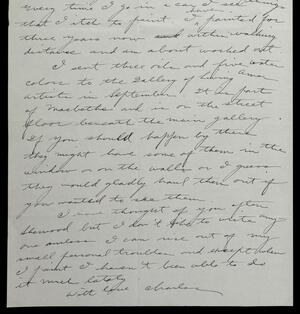 every time I go in a car I see things
that I itch to paint. I painted for
three years now within walking
distance and am about worked out
I sent three oils and five water
colors to the Gallery of Living Amer
artists in September. It is part
of Macbeths and is on the street
floor beneath the main gallery.
If you should happen by there
they might have some of them in the
window or on the walls or I guess
they would gladly haul them out if
you wanted to see them
I have thought of you often
Sherwood but I don't like to write any-
one unless I can rise out of my
small personal troubles and except when
I paint I haven't been able to do
it much lately.
With love Charles